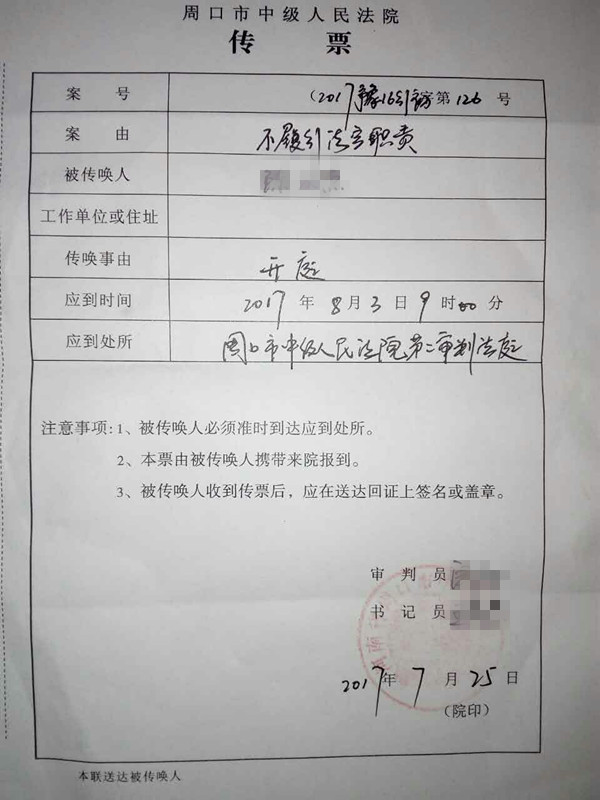 周口市中级人民法院
传票
案号 (2017)豫16行初字第126号
案由 不履行法定职责
被传唤人
工作单位或住址
传唤事由 开庭
应到时间 2017年8月3日9时00分
应到处所 周口市中级人民法院第二审判法庭
注意事项:1、被传唤人必须准时到达应到处所。
2、本票由被传唤人携带来院报到。
3、被传唤人收到传票后，应在送达回证上签名或盖章。
审判员
书记员
2017年7月25日
(院印)
本联送达被传唤人